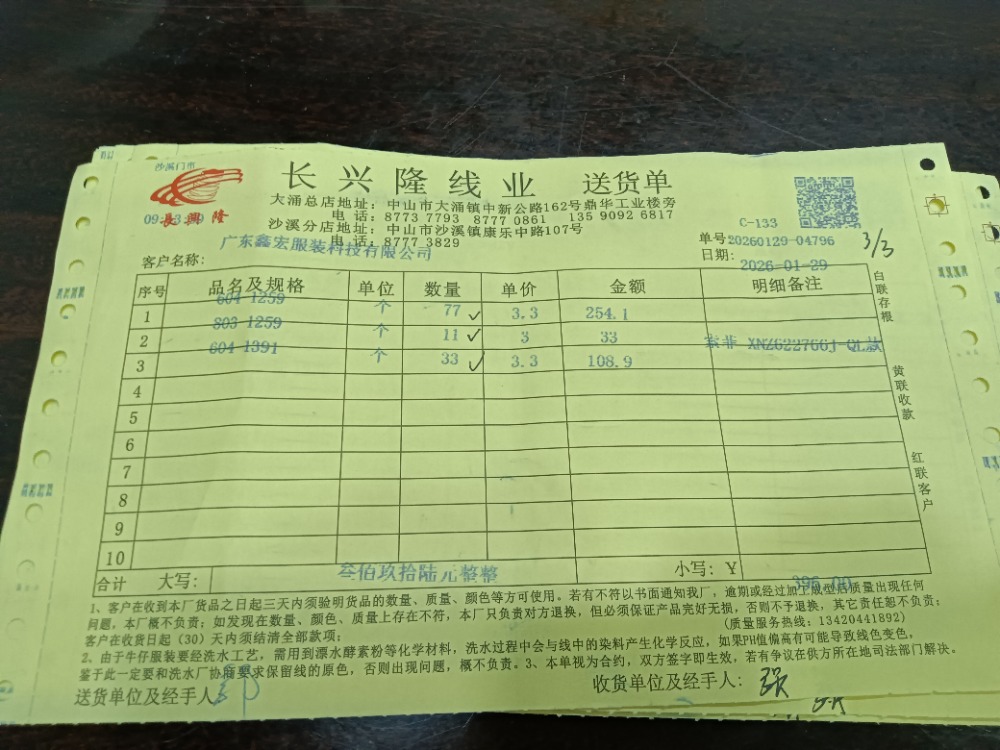 沙溪门市
長興隆
长兴隆线业 送货单
大涌总店地址：中山市大涌镇中新公路162号鼎华工业楼旁
电话：8773 7793 8777 0861 135 9092 6817
沙溪分店地址：中山市沙溪镇康乐中路107号
电话：8777 3829
C-133
单号：20260129-04796
3/3
日期：2026-01-29
客户名称：广东鑫宏服装科技有限公司
序号 品名及规格 单位 数量 单价 金额 明细备注
1 604 1259 个 77 ✓ 3.3 254.1
2 803 1259 个 11 ✓ 3 33
3 604 1391 个 33 ✓ 3.3 108.9 XNZ622766J-QL款
4
5
6
7
8
9
10
合计 大写：叁佰玖拾陆元整整 小写：¥ 396.00
白联存根
黄联收款
红联客户
1、客户在收到本厂货品之日起三天内须验明货品的数量、质量、颜色等方可使用。若有不符以书面通知我厂，逾期或经过加工成型后质量出现任何
问题，本厂概不负责；如发现在数量、颜色、质量上存在不符，本厂只负责对方退换，但必须保证产品完好无损，否则不予退换，其它责任恕不负责；
客户在收货日起（30）天内须结清全部款项；
(质量服务热线：13420441892)
2、由于牛仔服装要经洗水工艺，需用到漂水酵素粉等化学材料，洗水过程中会与线中的染料产生化学反应，如果PH值偏高有可能导致线色变色，
鉴于此一定要和洗水厂协商要求保留线的原色，否则出现问题，概不负责。3、本单视为合约，双方签字即生效，若有争议在供方所在地司法部门解决。
送货单位及经手人：
收货单位及经手人：